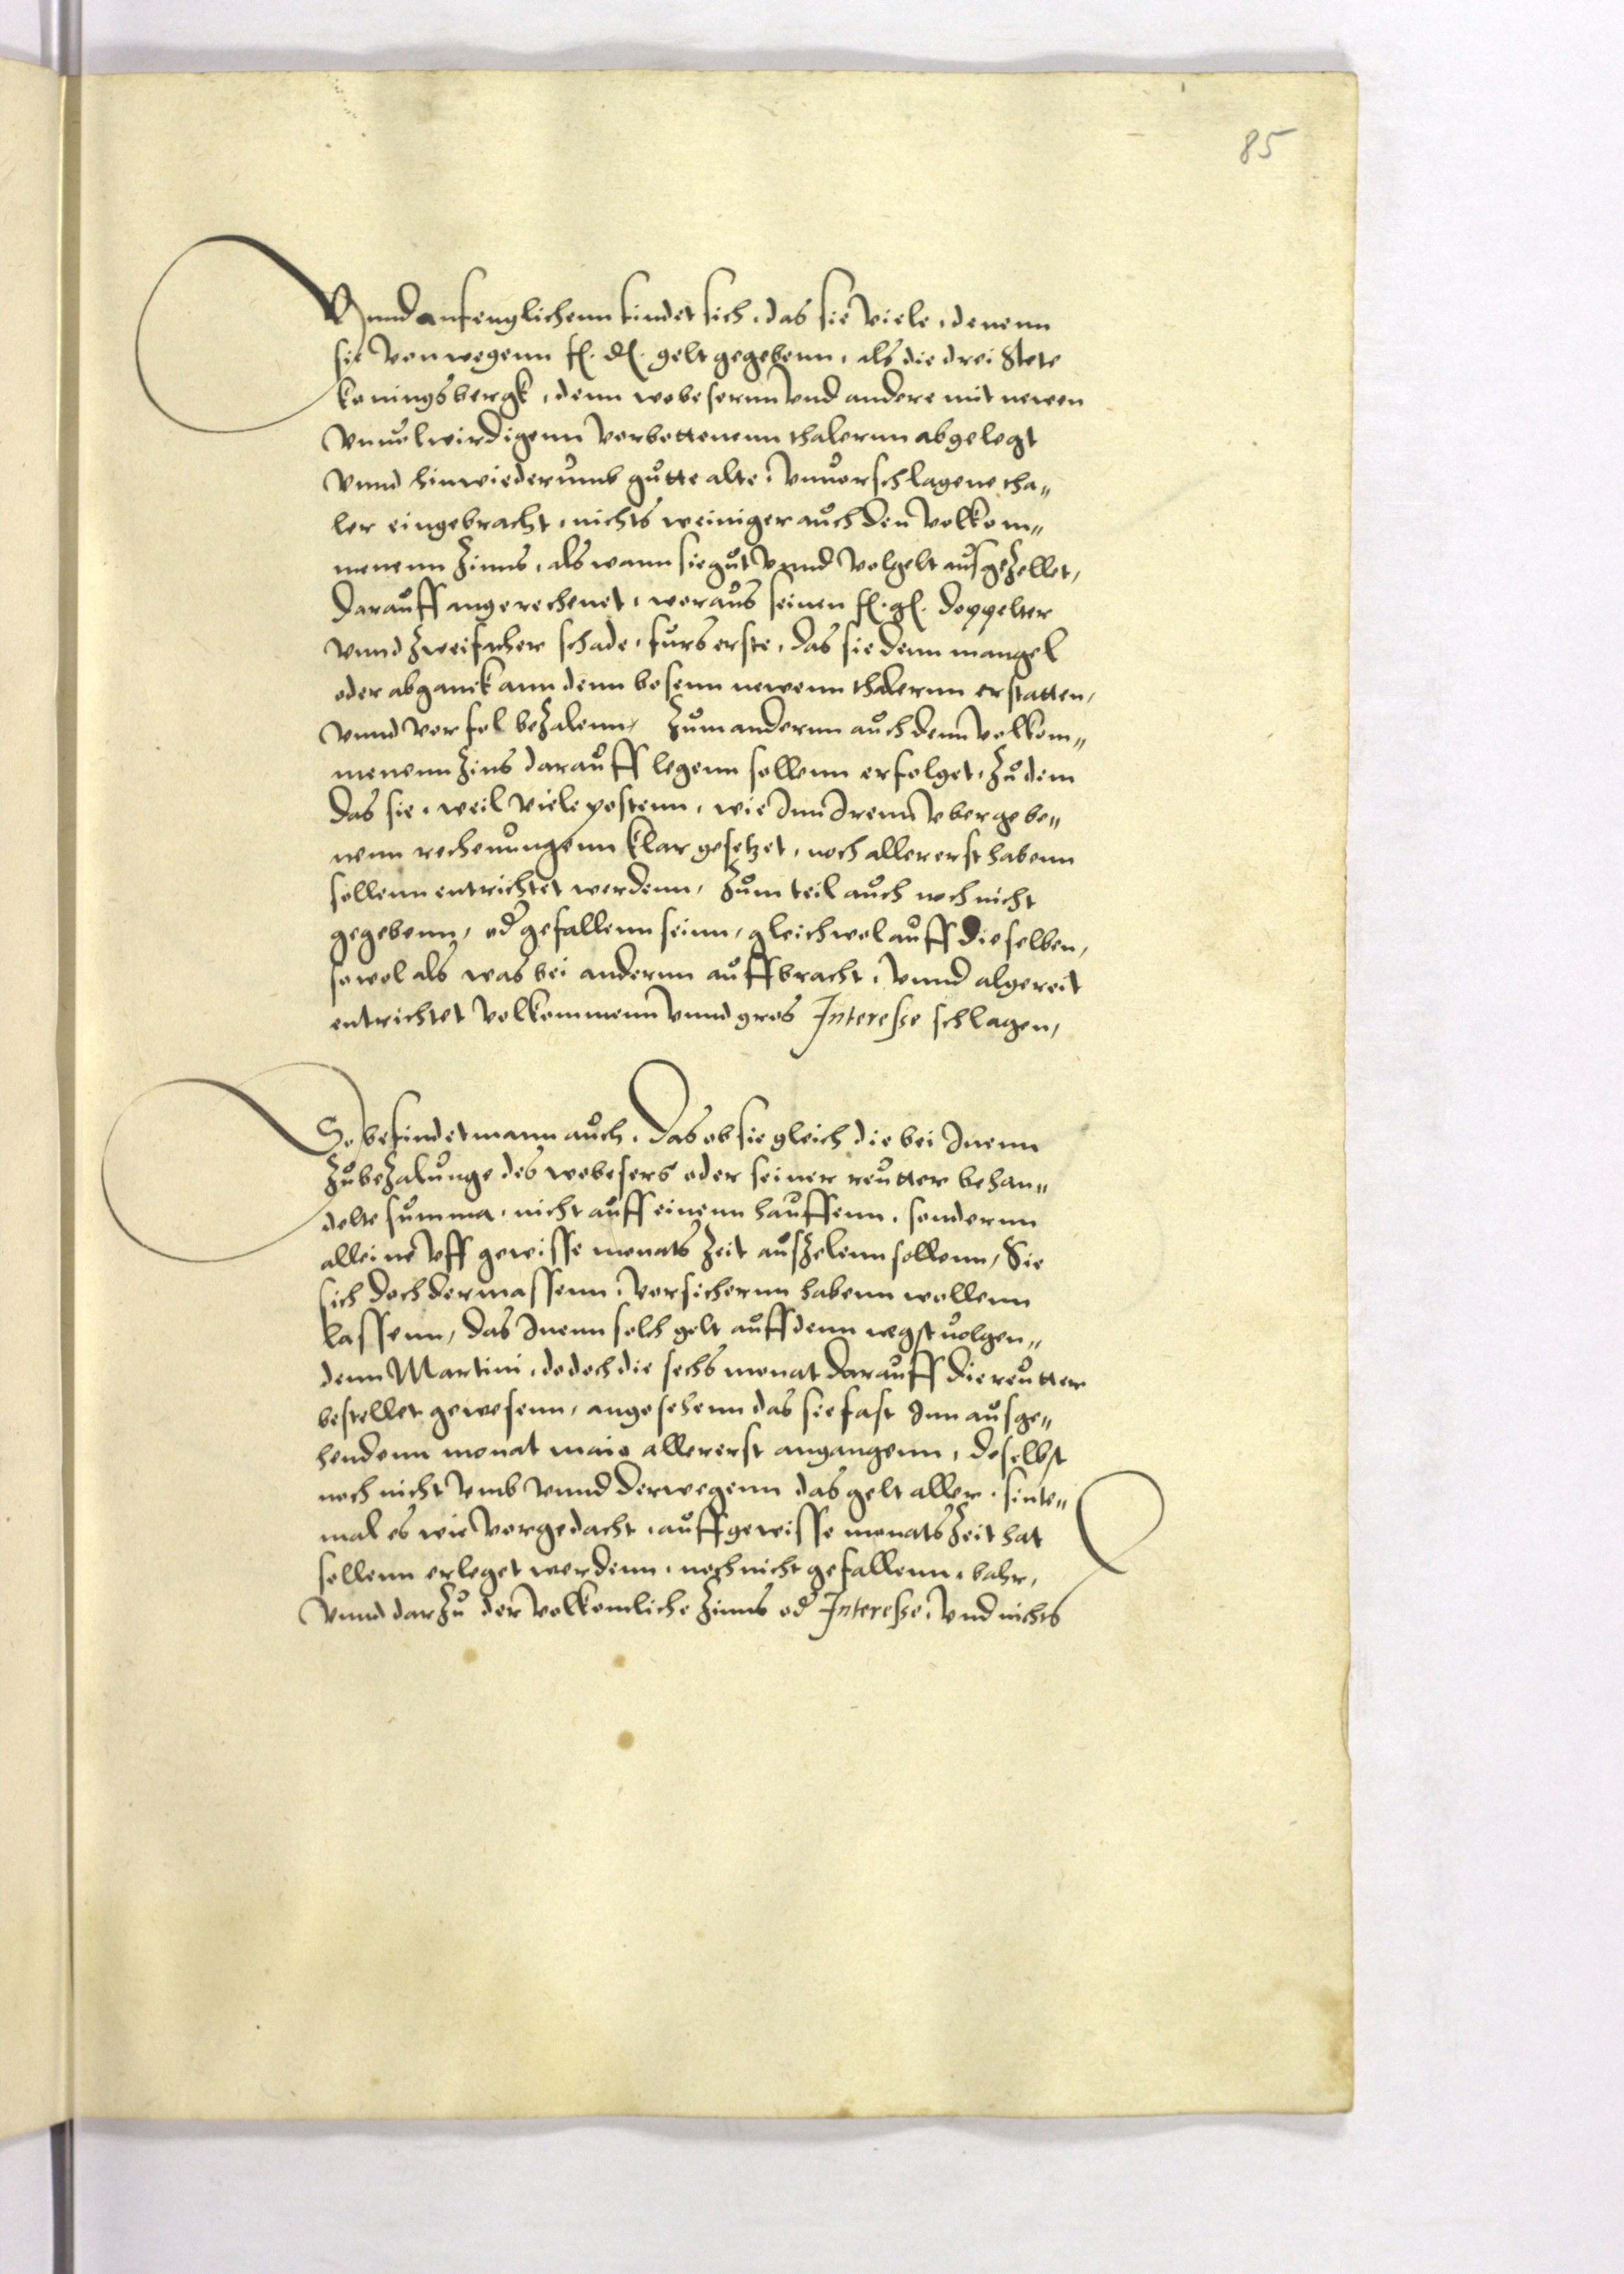 85
Vnnd anfenglichenn findet sich, das sie viele, denenn
sie von wegenn f. d. gelt gegebenn, als die drei Stete
koningsbergk, denn wobesernn vnd andere mit newen
vnuolwirdigenn verbottenenn thalernn abgelegt
vnnd hinwiederumb gutte alte, vnuorschlagene tha„
ler eingebracht, nichts weiniger auch den volkom„
menenn Zinns, als wann sie gut vnnd volgelt ausgezellet,
darauff angerechenet, woraus seinen f. g. doppelter
vnnd zweifacher schade, furs erste, das sie denn mangel
oder abganck ann denn bosenn newenn thalernn erstatten,
vnnd vor fol bezalenn, Zum andernn auch denn volkom„
menenn Zins darauff legenn sollenn erfolget, Zu dem
das sie, weil viele postenn, wie Inn Irenn vbergebe„
nenn rechenungenn klar gesetzet, noch allererst habenn
sollenn entrichtet werdenn, Zum teil auch noch nicht
gegebenn, od gefallenn seinn, gleichwol auff dieselben,
sowol als was bei andernn auffbracht, vnnd algereit
entrichtet volkommenn vnnd gros Interesse schlagen,
So befindet mann auch, das ob sie gleich die bei Inenn
Zu bezalunge des wobesers oder seiner reutter behan„
delte summa, nicht auff einenn hauffenn, sondernn
alleine vff gewisse monats Zeit auszelenn sollenn, Sie
sich doch dermassenn, versichernn habenn wollenn
lassenn, das Inenn solch gelt auff denn negstuolgen„
denn Martini, do doch die sechs monat darauff die reutter
bestellet gewesenn, angesehenn das sie fast Inn ausge„
hendenn monat maio allererst angangenn, doselbst
noch nicht vmb vnnd derwegenn das gelt aller, sinte„
mal es wie vorgedacht, auff gewisse monats Zeit hat
sollenn erleget werdenn, noch nicht gefallenn, bahr,
vnnd darzu der volkomliche Zinns od Interesse, vnd nichts